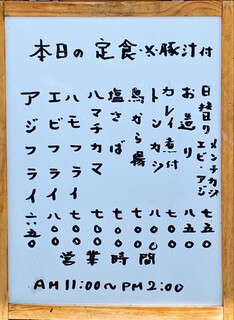 本日の定食・※豚汁付
日替り メンチカツ エビ・アジ 七五〇
お造り 八五〇
カレイ煮付 八〇〇
トンカツ 七〇〇
鳥から揚 七〇〇
塩さば 七〇〇
ハマチカマ 七〇〇
ハモフライ 八〇〇
エビフライ 八〇〇
アジフライ 六五〇
営業時間
AM 11:00〜PM 2:00